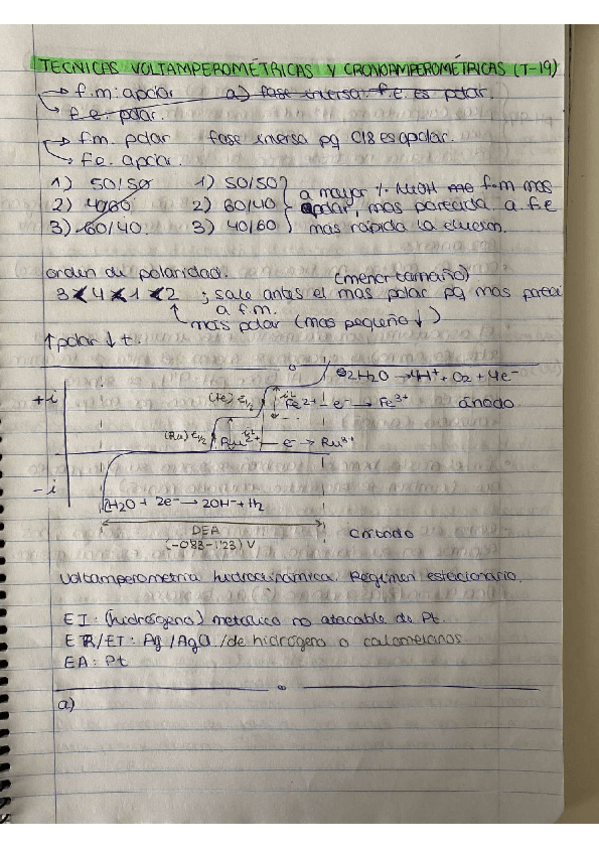 TECNICAS VOLTAMPEROMÉTRICAS Y CRONOAMPEROMÉTRICAS (T-19)
f.m: apolar a) fase inversa: f.e. es polar.
f.e: polar.
f.m. polar fase inversa pq C18 es apolar.
f.e. apolar.
1) 50/50 1) 50/50 a mayor % MeOH me f.m mas
2) 40/60 2) 60/40 apolar, mas parecida a f.e
3) 60/40. 3) 40/60 mas rápida la elucion.
orden de polaridad. (menor tamaño)
3 < 4 < 1 < 2 ; sale antes el mas polar pq mas pareci
a f.m.
mas polar (mas pequeño ↓)
↑ polar ↓ t.
2H2O → 4H+ + O2 + 4e-
+i (Fe) E1/2 Fe2+ - e- → Fe3+ ánodo
(Ru) E1/2 Ru2+ - e- → Ru3+
-i
2H2O + 2e- → 2OH- + H2
DEA
(-0'83-1'23) V cátodo
Voltamperometria hidrodinámica. Régimen estacionario.
EI: (hidrógeno) metálico no atacable de Pt.
ER/ET: Ag/AgCl /de hidrógeno o calomelanos
EA: Pt
a)